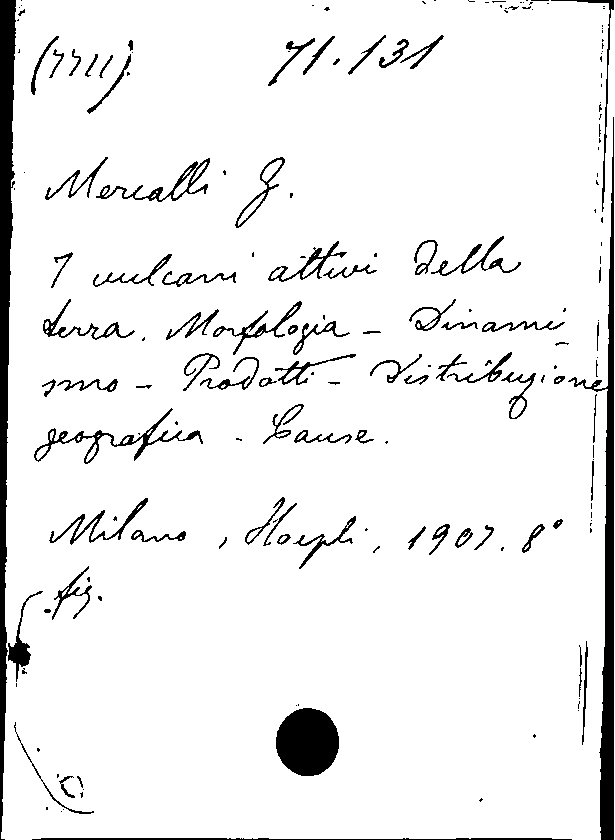 (7711) 71.131
Mercalli G.
I vulcani attivi della
terra. Morfologia - Dinami-
smo - Prodotti - Distribuzione
geografica - Cause.
Milano, Hoepli, 1907. 8°
fig.